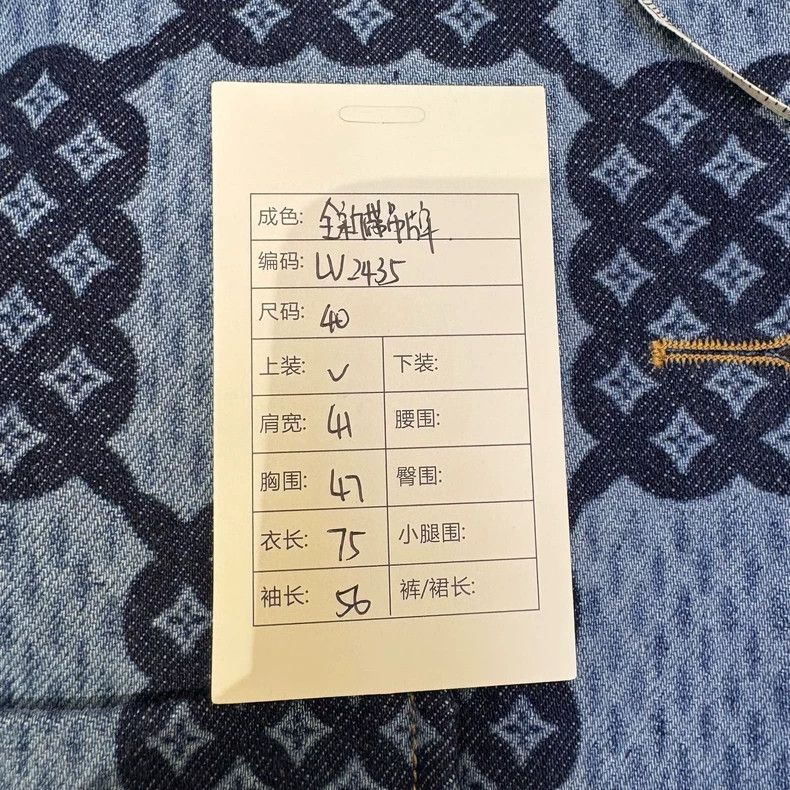 成色: 全新带吊牌
编码: LV2435
尺码: 40
上装: ✓ 下装:
肩宽: 41 腰围:
胸围: 47 臀围:
衣长: 75 小腿围:
袖长: 56 裤/裙长: